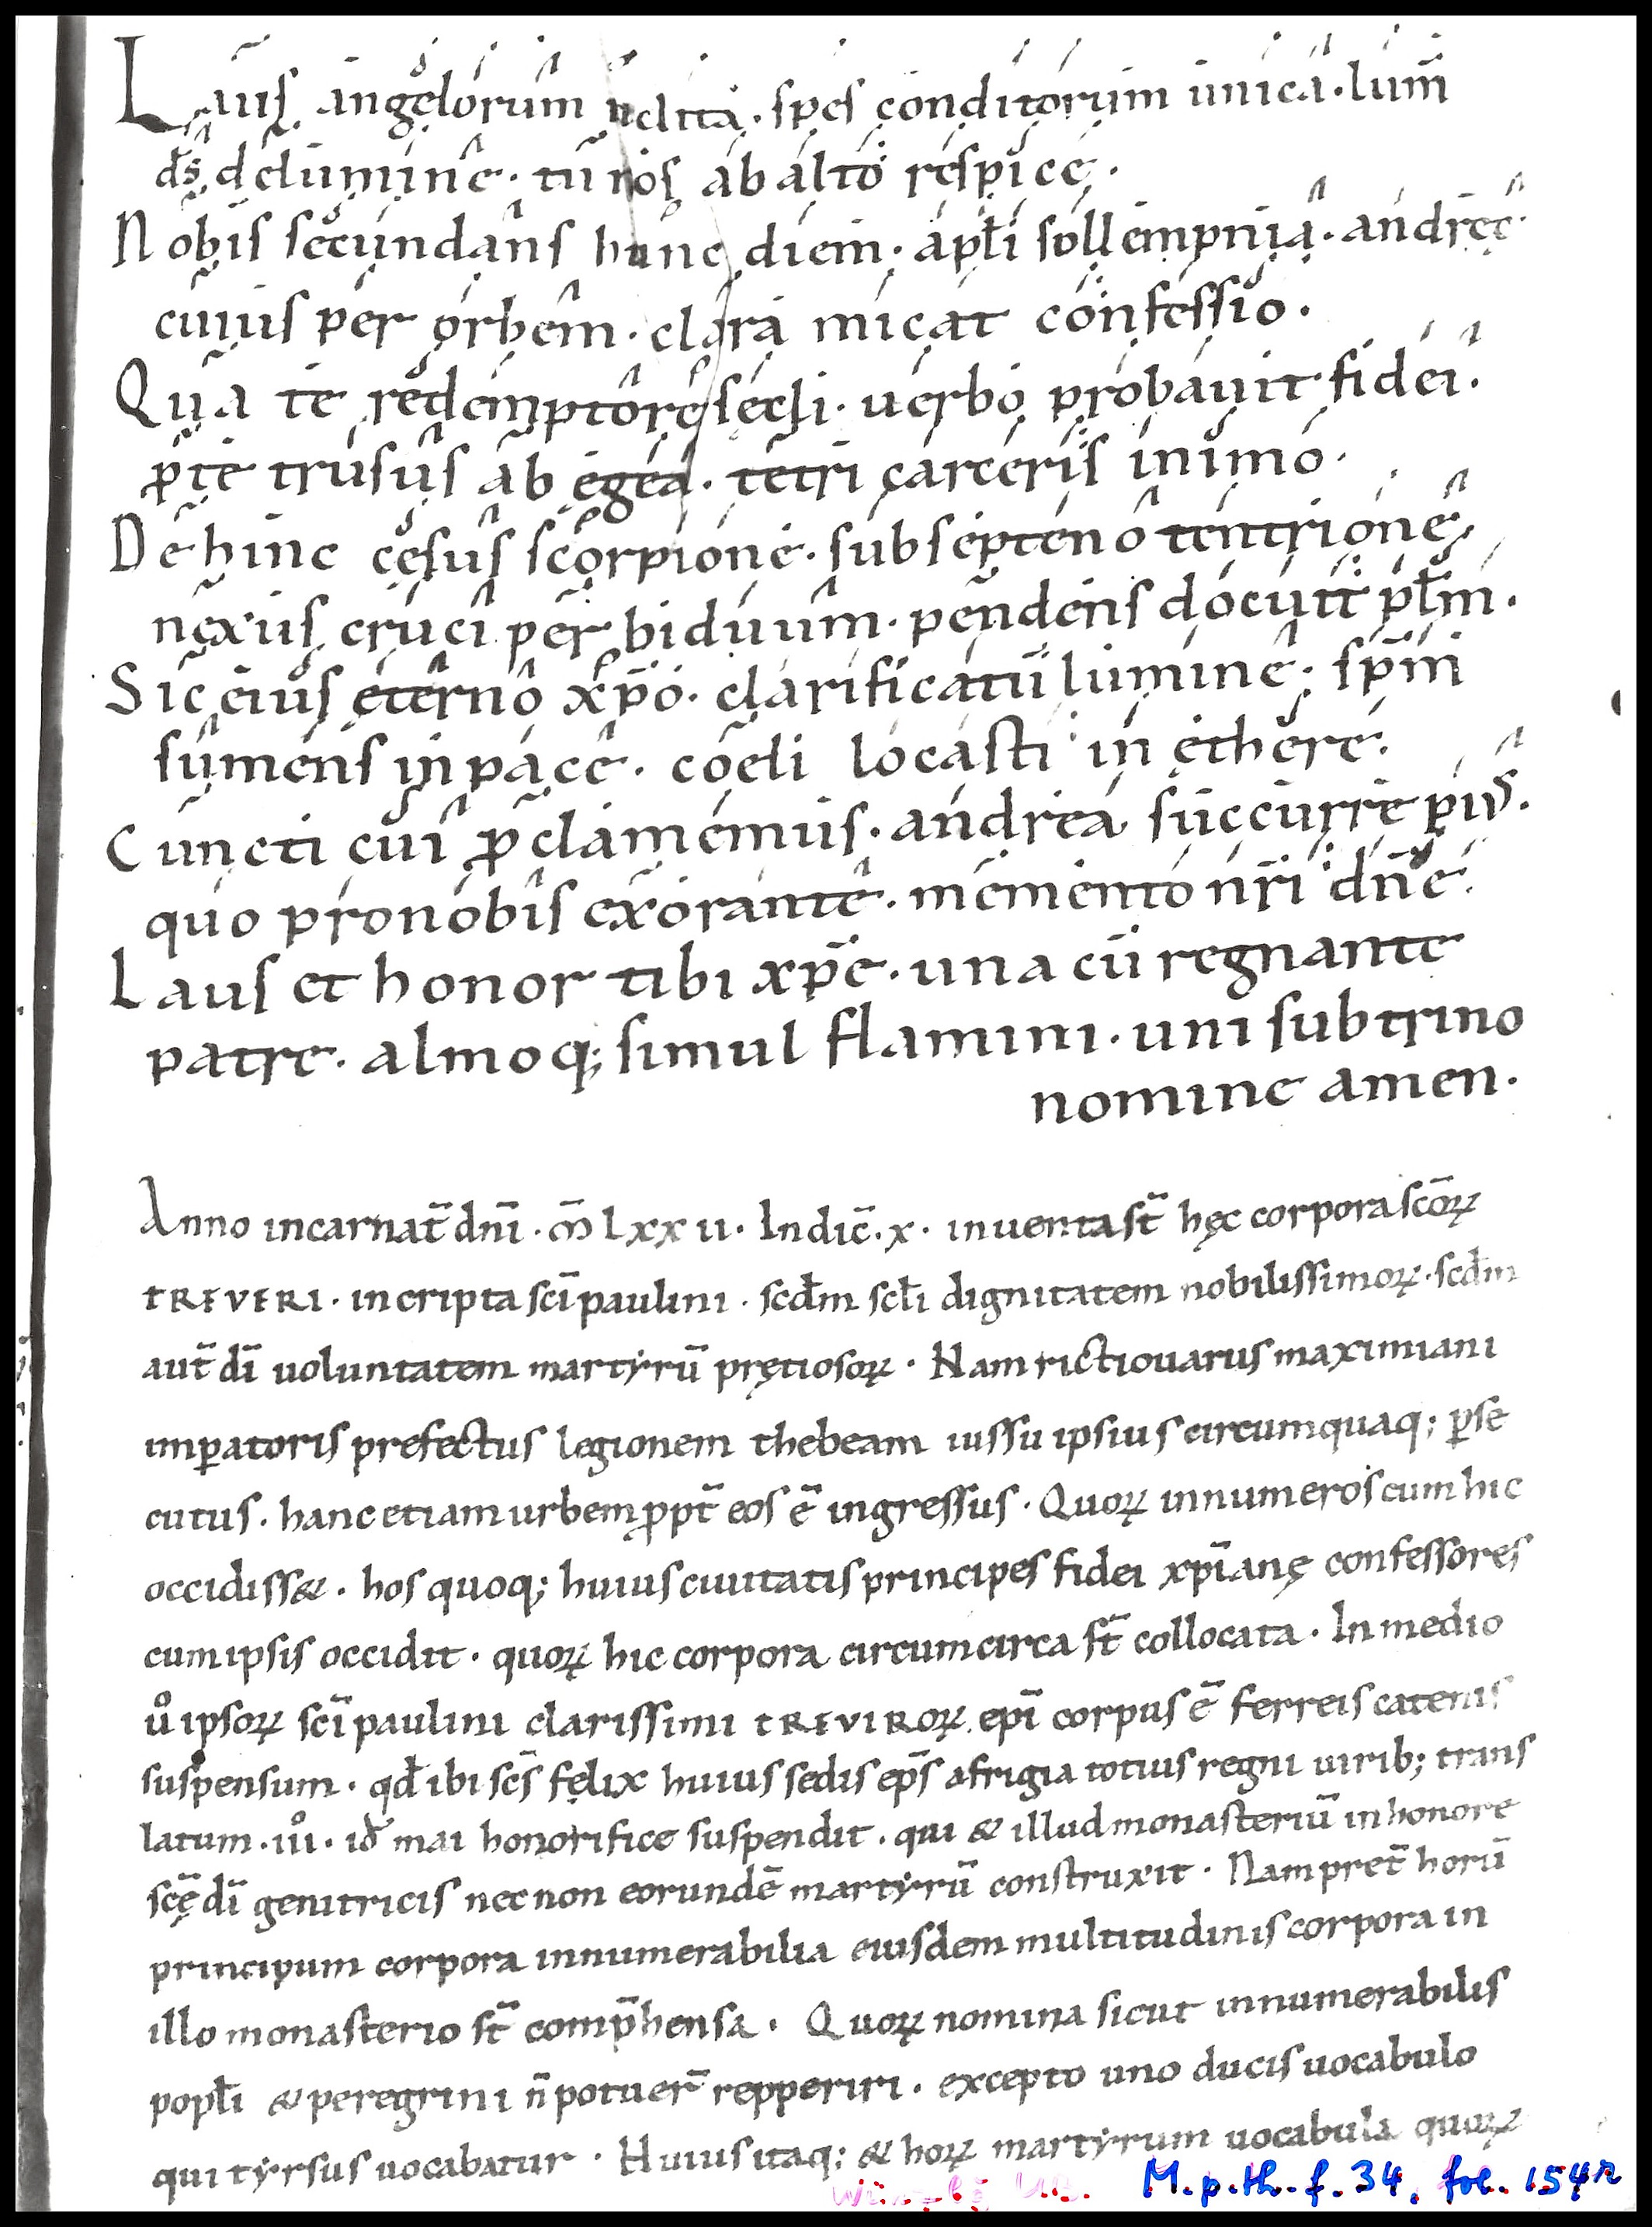 Laus angelorum inclita · spes conditorum unica · lum̄
d̄s delumine · tu nos ab alto respice ·
Nobis secundans hunc diem · apł̄i sollempnia · andreę ·
cuius per orbem · clara micat confessio ·
Qua te redemptorē sēcli · uerbo probauit fidei ·
p̄te trusus ab egea · tetri carceris in imo ·
Dehinc cęsus scorpione · sub septeno tentrione
nexus cruci per biduum · pendens docuit pł̄m ·
Sic eius ęterno xp̄o · clarificatū lumine · sp̄m
sumens in pace · coeli locasti in ęthere ·
Cuncti cui proclamemus · andrea succurre pius ·
quo pro nobis exorante · memento nr̄i dn̄e ·
Laus et honor tibi xp̄e · una cū regnante
patre · almoq; simul flamini · uni sub trino
nomine amen ·
Anno incarnat̄ dn̄i · m̄ lxx ii · Indic̄ · x · inuenta st̄ hęc corpora scōꝝ
TREVERI · in cripta scī paulini · scd̄m scł̄i dignitatem nobilissimoꝝ · scd̄m
aut̄ dī uoluntatem martyrū pręciosoꝝ · Nam rictiouarus maximiani
imꝑatoris prefectus legionem thebeam iussu ipsius circumquaq; ꝑse
cutus · hanc etiam urbem ꝓpt̄ eos ē ingressus · Quoꝝ innumeros cum hic
occidiss& · hos quoq; huius ciuitatis principes fidei xp̄ianę confessores
cum ipsis occidit · quoꝝ hic corpora circumcirca st̄ collocata · In medio
uͦ ipsoꝝ scī paulini clarissimi TREVIROꝝ ep̄i corpus ē ferreis catenis
suspensum · qd̄ ibi sc̄s felix huius sedis ep̄s a frigia totius regni uirib; trans
latum · iiiͦ · id̄ mai honorifice suspendit · qui & illud monasteriū in honore
scę̄ dī genitricis nec non eorundē martyrū construxit · Nam pret̄ horū
principum corpora innumerabilia eiusdem multitudinis corpora in
illo monasterio st̄ comp̄hensa · Quoꝝ nomina sicut innumerabilis
popł̄i & peregrini n̄ potuer̄ repperiri · excepto uno ducis uocabulo
qui tyrsus uocabatur · Huius itaq; & hoꝝ martyrum uocabula quoꝝ
M.p.th.f. 34, fol. 154r